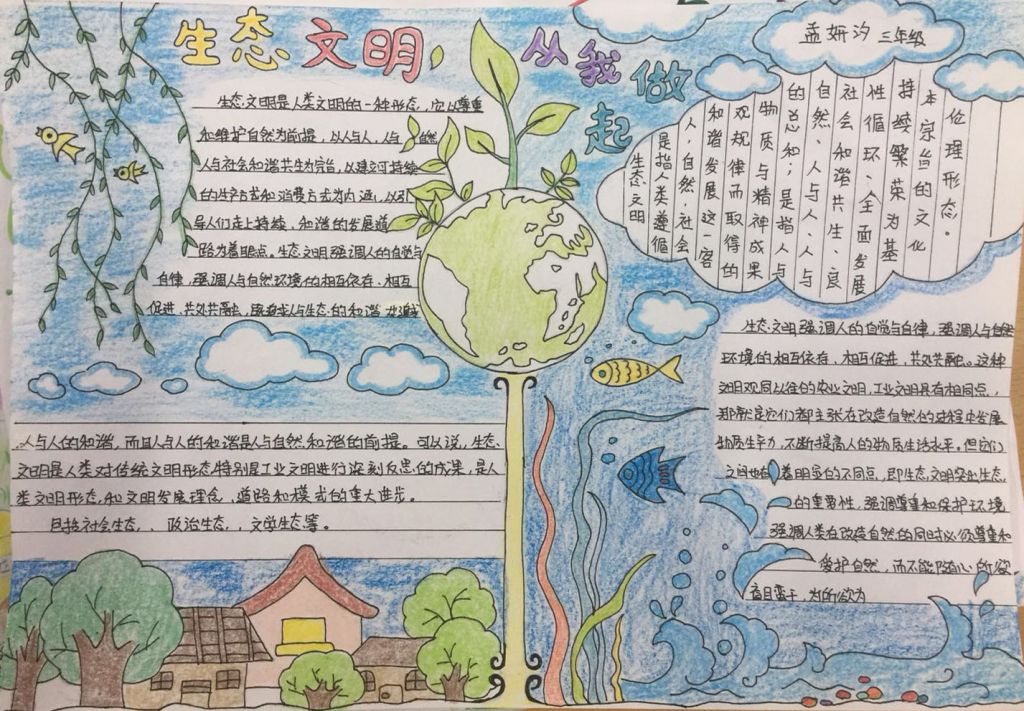 生态文明，从我做起
孟妍汐 三年级
生态文明是人类文明的一种形态，它以尊重
和维护自然为前提，以人与人，人与自然
人与社会和谐共生为宗旨，以建立可持续
的生产方式和消费方式为内涵，以引
导人们走上持续，和谐的发展道
路为着眼点。生态文明强调人的自觉与
自律，强调人与自然环境的相互依存，相互
促进，共处共融，既追求人与生态的和谐
人与人的和谐，而且人与人的和谐是人与自然和谐的前提。可以说，生态
文明是人类对传统文明形态特别是工业文明进行深刻反思的成果，是人
类文明形态和文明发展理念，道路和模式的重大进步。
包括社会生态，、政治生态，，文学生态等。
生态文明
是指人类遵循
人，自然，社会
和谐发展这一客
观规律而取得的
物质与精神成果
的总和；是指人与
自然、人与人、人与
社会和谐共生、良
性循环、全面发展
持续繁荣为基
本宗旨的文化
伦理形态。
生态文明强调人的自觉与自律，强调人与自然
环境的相互依存，相互促进，共处共融。这种
文明观同以往的农业文明，工业文明具有相同点，
那就是它们都主张在改造自然的过程中发展
物质生产力，不断提高人的物质生活水平。但它们
之间也有着明显的不同点，即生态文明突出生态
的重要性，强调尊重和保护环境
强调人类在改造自然的同时必须尊重和
爱护自然，而不能随心所欲
盲目蛮干，为所欲为